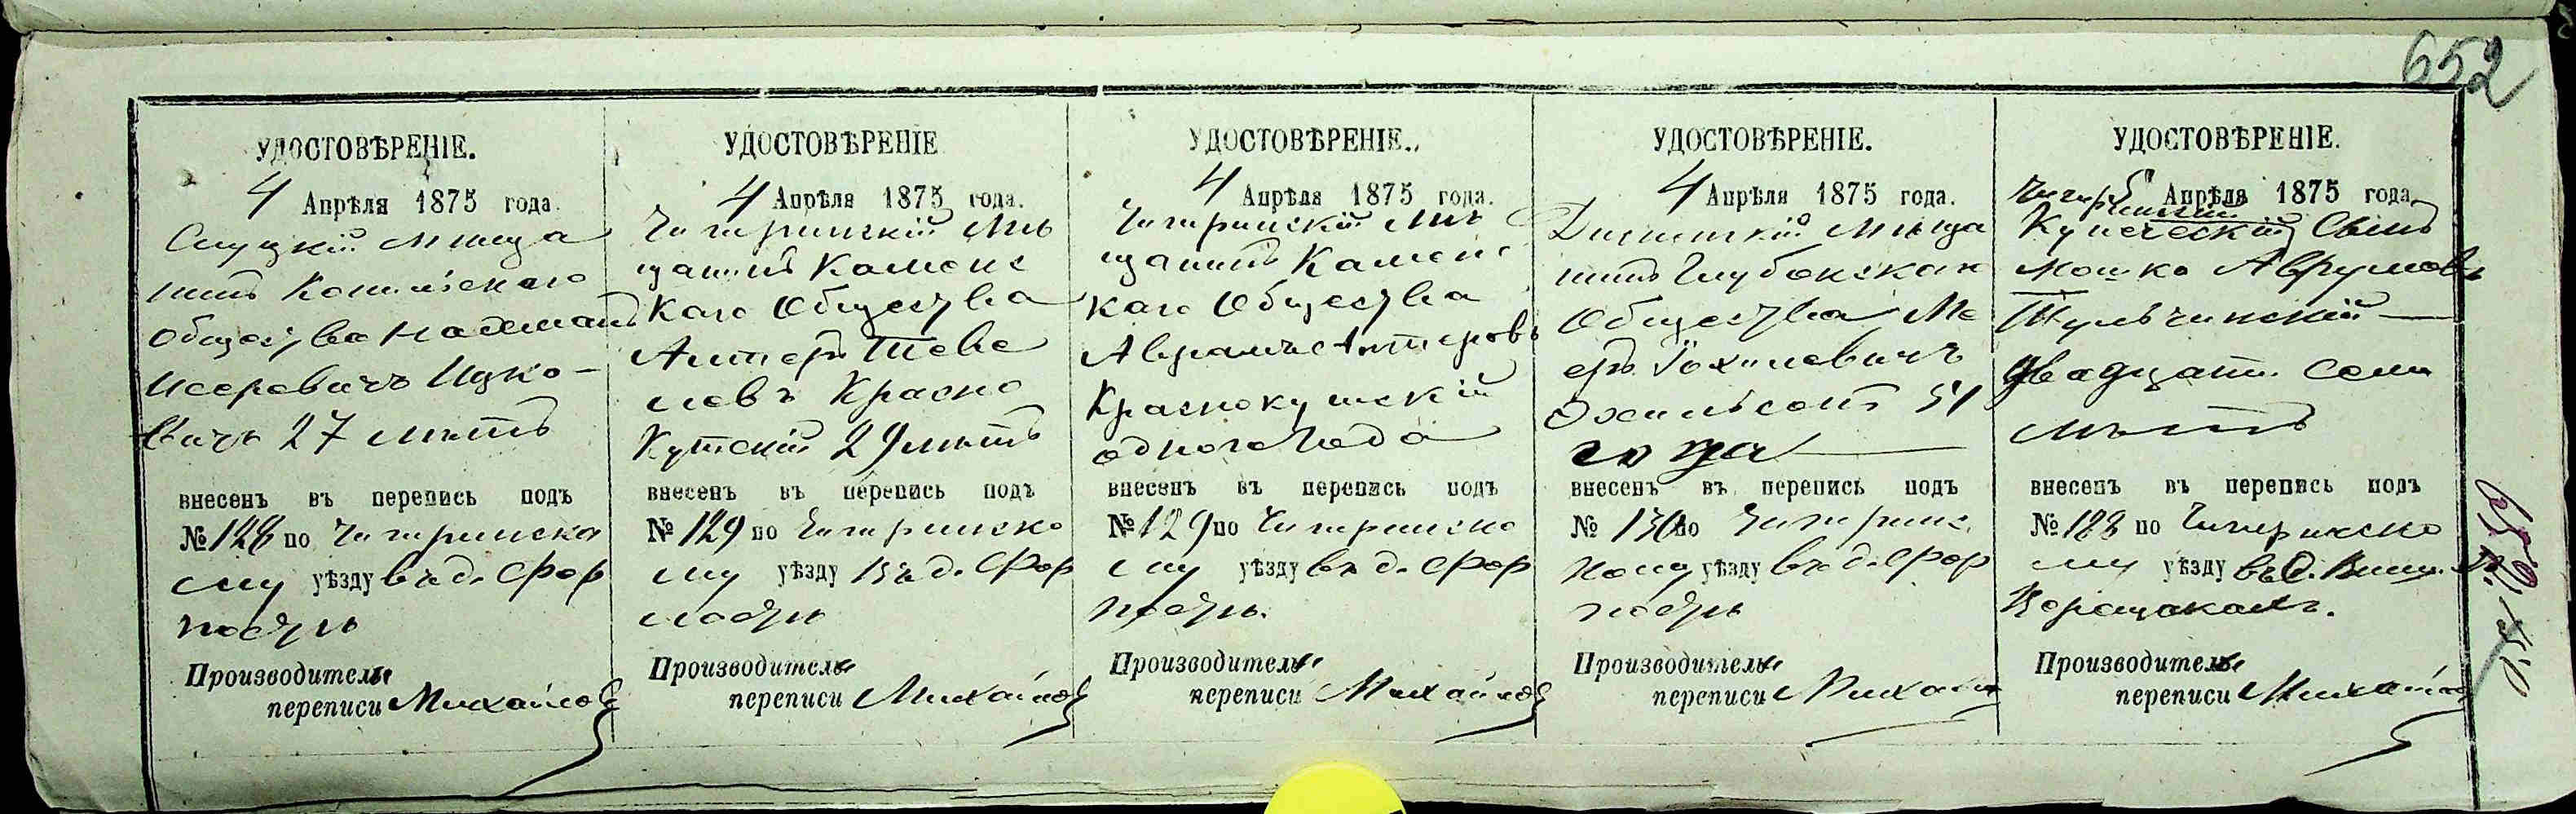 652
УДОСТОВѢРЕНІЕ.
4 Апрѣля 1875 года.
Слуцкій мѣща
нинъ Копыльскаго
Общества Нахманъ
Исеровичъ Ицко-
вичъ 27 лѣтъ
внесенъ въ перепись подъ
№ 128 по Чигиринско
му уѣзду въ д. Фор
постъ
Производитель
переписи Михайлов
УДОСТОВѢРЕНІЕ
4 Апрѣля 1875 года.
Чигиринскій мѣ
щанинъ Каменс
каго Общества
Алтеръ Теве
левъ Красно
Кутскій 29 лѣтъ
внесенъ въ перепись подъ
№ 129 по Чигиринско
му уѣзду въ д. Фор
постъ
Производитель
переписи Михайлов
УДОСТОВѢРЕНІЕ.
4 Апрѣля 1875 года.
Чигиринскій мѣ
щанинъ Каменс
каго Общества
Аврамъ Алтеровъ
Краснокутскій
одного года
внесенъ въ перепись подъ
№ 129 по Чигиринско
му уѣзду въ д. Фор
постъ.
Производитель
переписи Михайлов
УДОСТОВѢРЕНІЕ.
4 Апрѣля 1875 года.
Дисненскій мѣща
нинъ Глубокскаго
Общества Ме
еръ
51
года
внесенъ въ перепись подъ
№ 130 по Чигиринс
кому уѣзду въ д. Фор
постъ
Производитель
переписи Михайлов
УДОСТОВѢРЕНІЕ.
5 Апрѣля 1875 года
Чигиринскій
Купеческій Сынъ
Мошко Аврумовъ
Тульчинскій
двадцати семи
лѣтъ
внесенъ въ перепись подъ
№ 128 по Чигиринско
му уѣзду въ С.
Ворацакахъ.
Производитель
переписи Михайлов